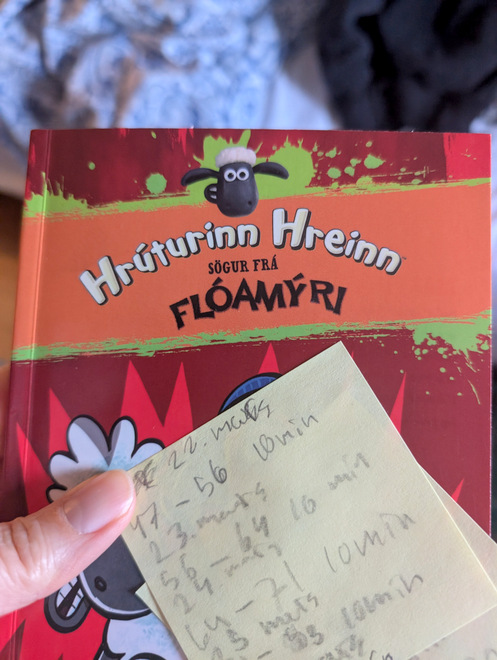 Hrúturinn Hreinn
SÖGUR FRÁ
FLÓAMÝRI
22. mars
47 - 56 10 min
23. mars
56 - 64 10 min
24. mars
64 - 71 10 min
mars
10 min